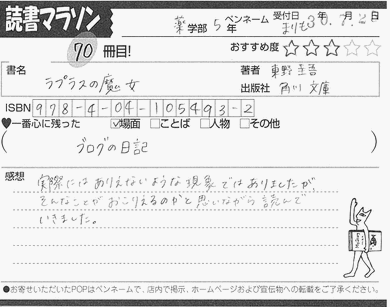 読書マラソン
70 冊目!
薬 学部 5 年
ペンネーム まりも
受付日 30.7.2日
おすすめ度 ☆☆☆☆☆
書名 ラプラスの魔女
著者 東野圭吾
出版社 角川文庫
ISBN 978-4-04-105493-2
♥一番心に残った ☑場面 □ことば □人物 □その他
( ブログの日記 )
感想 実際にはありえないような現象ではありましたが、
そんなことがおこりえるのかと思いながら読んで
いきました。
●お寄せいただいたPOPはペンネームで、店内で掲示、ホームページおよび宣伝物への転載をご了承ください。